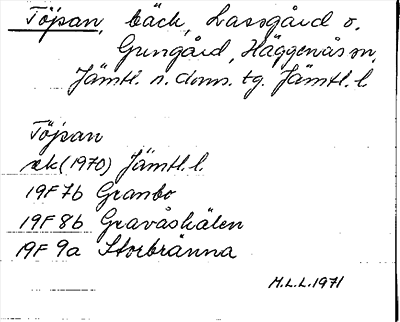 Töjsan, bäck, Lassgård o.
Grungård, Häggenås sn,
Jämtl. n. doms. tg. Jämtl. l.
Töjsan
ek (1970) Jämtl. l.
19F 7b Granbo
19F 8b Gravåskälen
19F 9a Storbränna
M.L.L. 1971